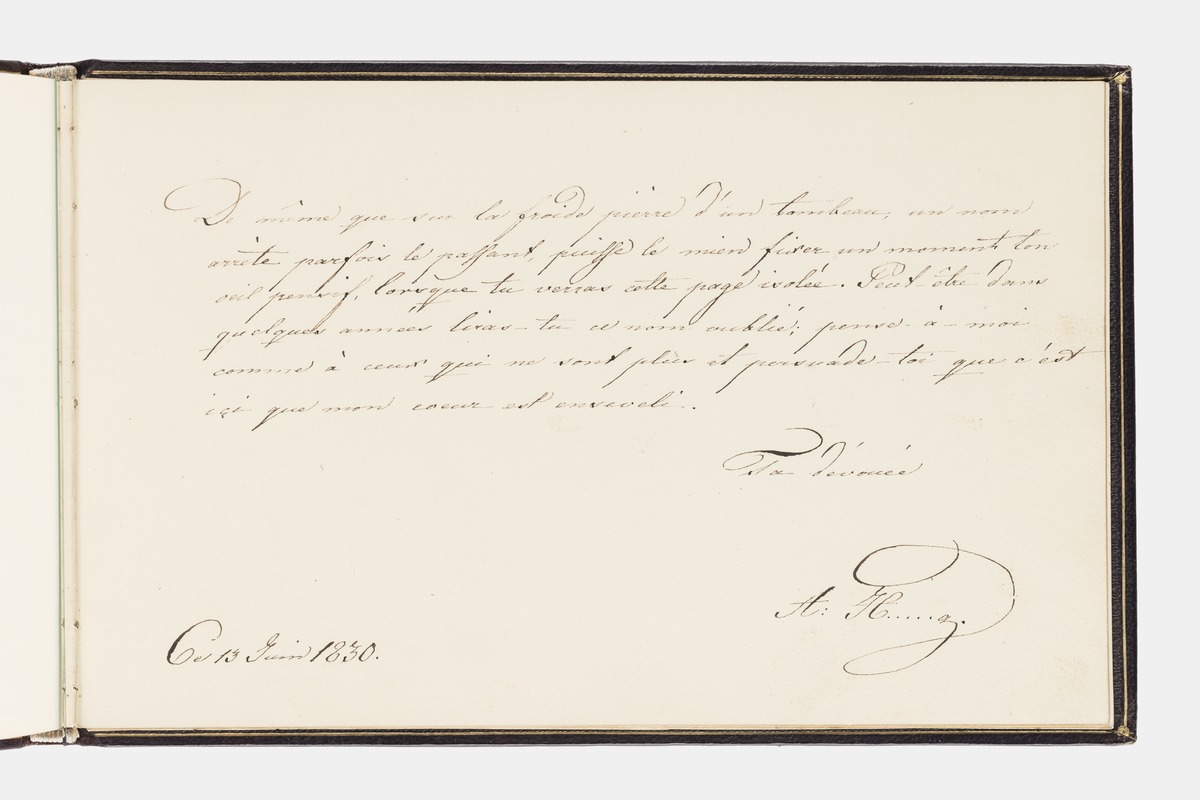 De même que sur la froide pierre d'un tombeau, un nom
arrête parfois le passant, puisse le mien fixer un moment ton
oeil pensif, lorsque tu verras cette page isolée. Peut-être dans
quelques années liras-tu ce nom oublié; pense-à-moi
comme à ceux qui ne sont plus et persuade-toi que c'est
içi que mon coeur est enseveli.
Ta dévouée
A: H.....g.
Ce 13 Juin 1830.